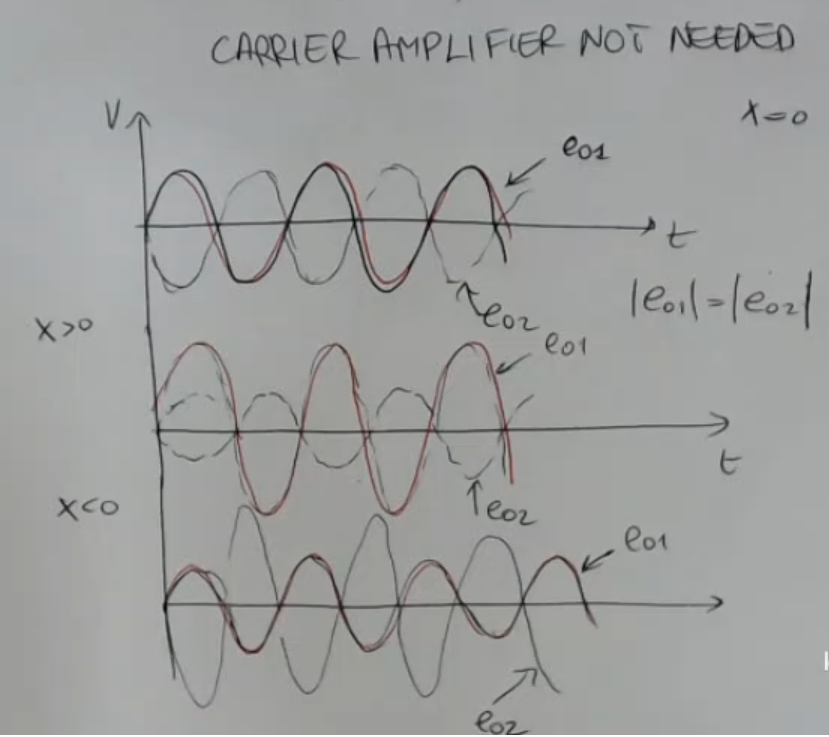 CARRIER AMPLIFIER NOT NEEDED
V
X=0
e01
t
|e01|=|e02|
e02
X>0
e01
t
X<0
e02
e01
e02